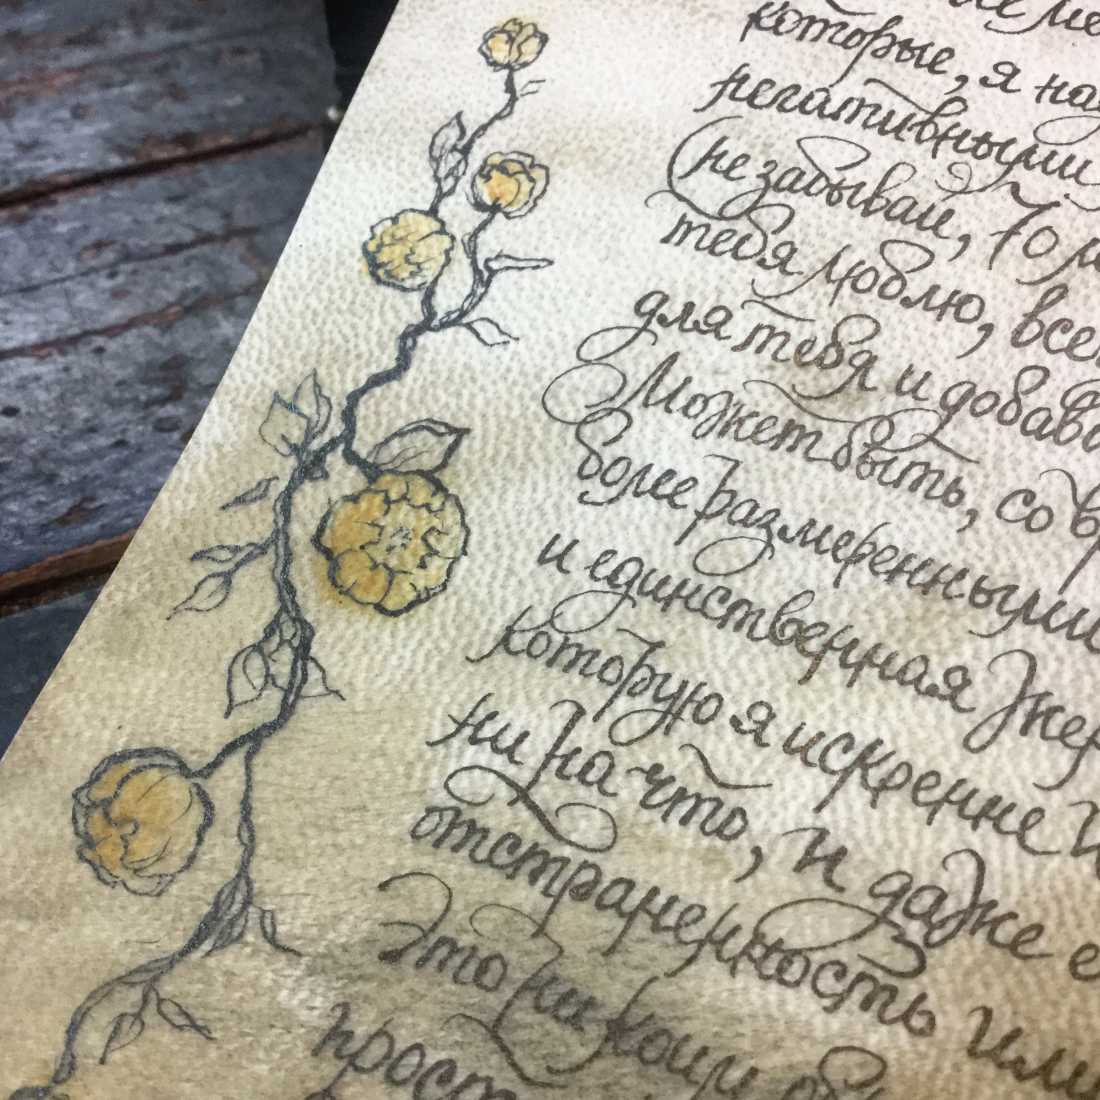 которые, я
негативными
(не забывай,
тебя люблю, все
для тебя и добав
Может быть, со в
более размеренными
и единственная
которую я искренне
ни на что, и даже е
отстраненность или
Это ни коим об
прост